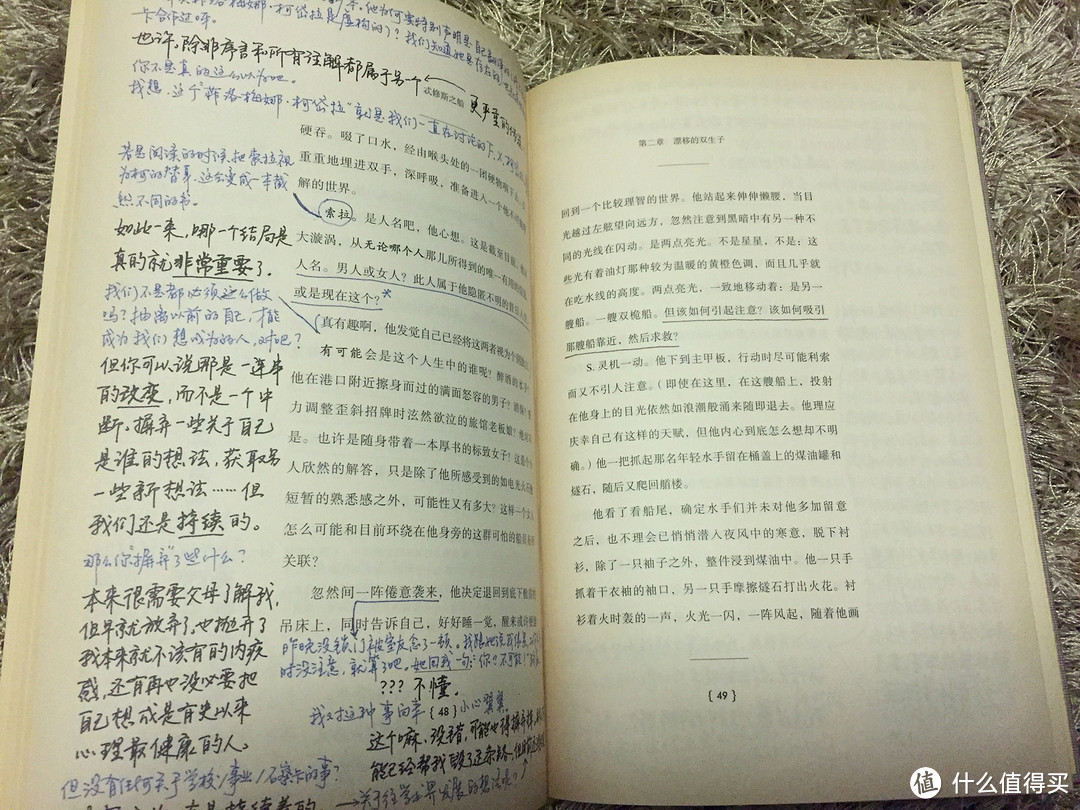 卡合作过呀。
也许，除非序言和所有注解都属于另一个
更严重的
忒修斯之船
你不是真的这么以为吧。
我想，这个“菲洛梅娜·柯岱拉”就是我们一直在讨论的F.X.
若是阅读的时候，把索拉视
为柯的替身，这会变成一本截
然不同的书。
如此一来，哪一个结局是
真的就非常重要了。
我们不是都必须这么做
吗？抽离以前的自己，才能
成为我们想成为的人，对吧？
但你可以说那是一连串
的改变，而不是一个中
断。摒弃一些关于自己
是谁的想法，获取另
一些新想法……但
我们还是持续的。
那么你“摒弃”了些什么？
本来很需要父母了解我，
但早就放弃了，也抛开了
我本来就不该有的内疚
感，还有再也没必要把
自己想成是有史以来
心理最健康的人。
但没有任何关于学校/事业/石察卡的事？
硬吞。啜了口水，经由喉头处的一团硬物咽下
重重地埋进双手，深呼吸，准备进入一个他不
解的世界。
索拉。是人名吧，他心想。这是截至目前，他从
大漩涡，从无论哪个人那儿所得到的唯一有用的
人名。男人或女人？此人属于他隐匿不明的昔日人生
或是现在这个？
（真有趣啊，他发觉自己已经将这两者视为个别的
有可能会是这个人生中的谁呢？醉酒的水手
他在港口附近擦身而过的满面怒容的男子？酒保？
力调整歪斜招牌时泫然欲泣的旅馆老板娘？他
是。也许是随身带着一本厚书的标致女子？这是个
人欣然的解答，只是除了他所感受到的如电光火石
短暂的熟悉感之外，可能性又有多大？这样一个女人
怎么可能和目前环绕在他身旁的这群可怕的船员有所
关联？
忽然间一阵倦意袭来，他决定退回到底下舱房的
吊床上，同时告诉自己，好好睡一觉，醒来或许
昨晚没锁门被室友念了一顿。我跟她说
时没注意，就算了吧。她回我一句：你？不可能！
？？？不懂。
我对这种事向来
小心翼翼。
{ 48 }
这个嘛，没错，可能也得摒弃掉
能已经帮我毁了还余缺
——关于往学术界发展的想法呢？
第二章 漂移的双生子
回到一个比较理智的世界。他站起来伸伸懒腰，当目
光越过左舷望向远方，忽然注意到黑暗中有另一种不
同的光线在闪动。是两点亮光。不是星星，不是；这
些光有着油灯那种较为温暖的黄橙色调，而且几乎就
在吃水线的高度。两点亮光，一致地移动着：是另一
艘船。一艘双桅船。但该如何引起注意？该如何吸引
那艘船靠近，然后求救？
S. 灵机一动。他下到主甲板，行动时尽可能利索
而又不引人注意。（即使在这里，在这艘船上，投射
在他身上的目光依然如浪潮般涌来随即退去。他理应
庆幸自己有这样的天赋，但他内心到底怎么想却不明
确。）他一把抓起那名年轻水手留在桶盖上的煤油罐和
燧石，随后又爬回艏楼。
他看了看船尾，确定水手们并未对他多加留意
之后，也不理会已悄悄潜入夜风中的寒意，脱下衬
衫，除了一只袖子之外，整件浸到煤油中。他一只手
抓着干衣袖的袖口，另一只手摩擦燧石打出火花。衬
衫着火时轰的一声，火光一闪，一阵风起，随着他画
{ 49 }
值 什么值得买